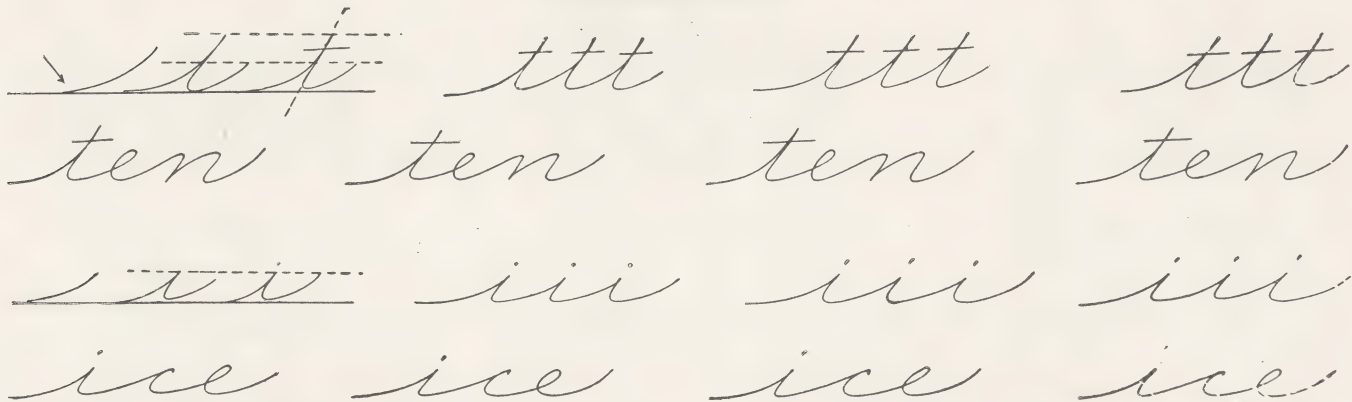 t t ttt ttt ttt
ten ten ten ten
i i iii iii iii
ice ice ice ice